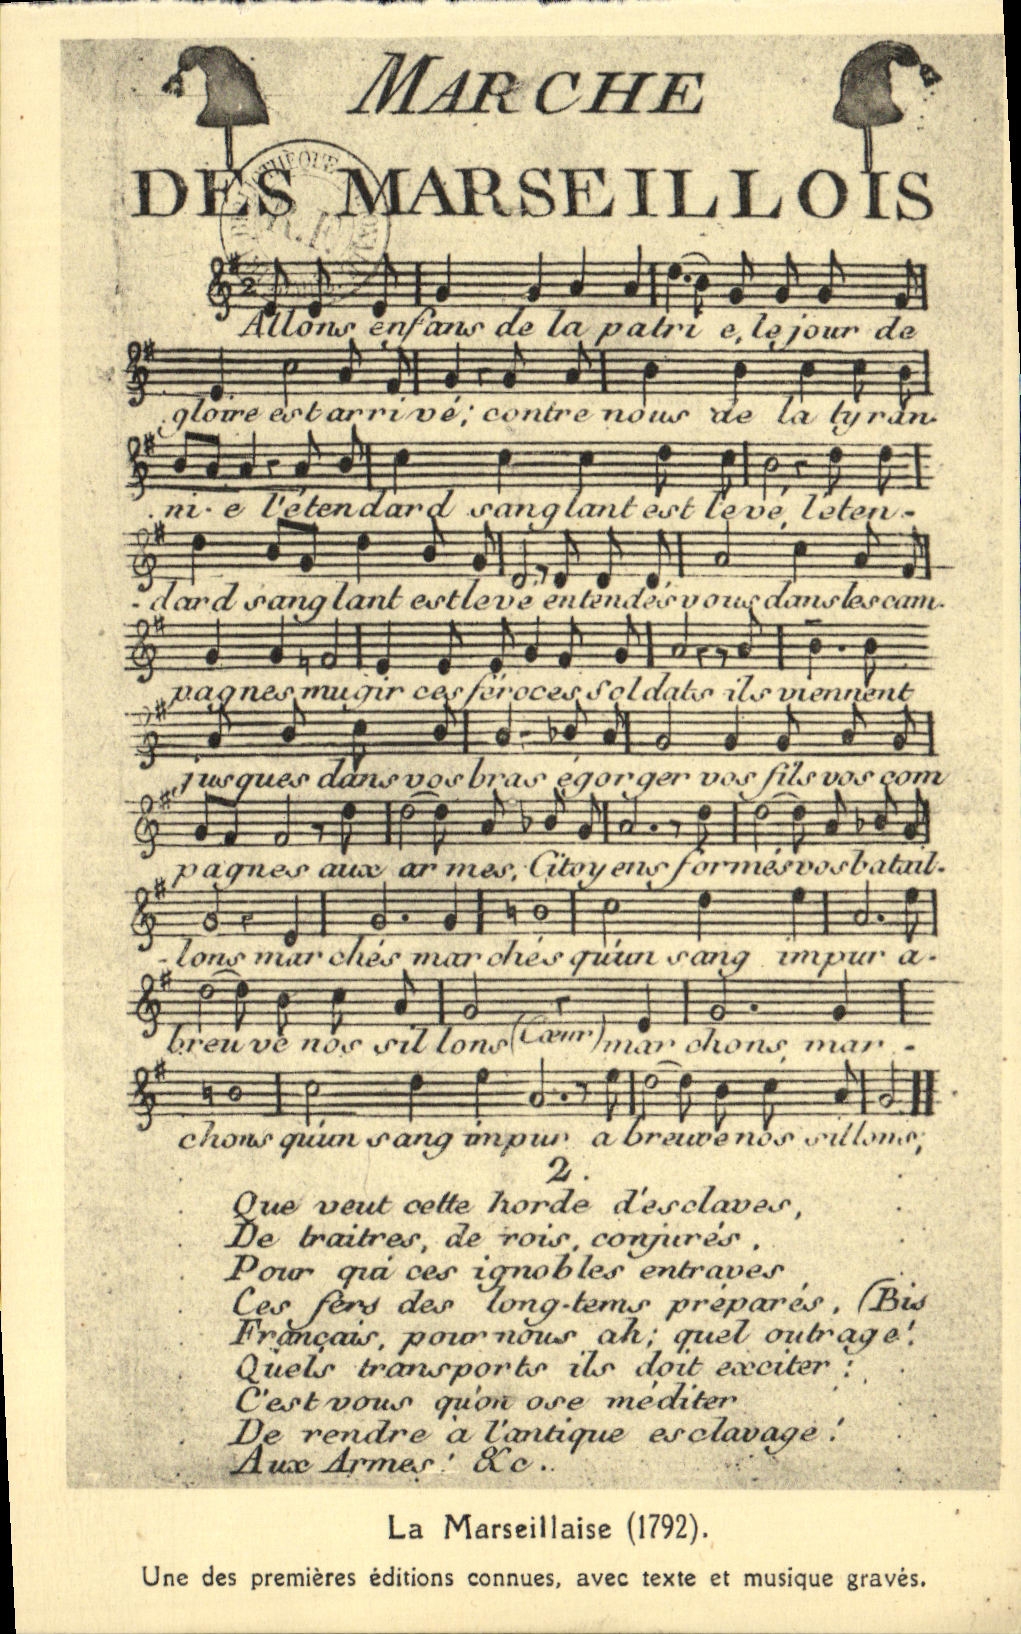 MARCHE
DES MARSEILLOIS
Allons enfans de la patri e, le jour de
gloire est arri vé; contre nous de la tyran-
ni- e l'étendard sanglant est levé, léten-
-dard sanglant est levé entendés vous dans les cam-
pagnes mugir ces féroces soldats ils viennent
jusques dans vos bras égorger vos fils vos com
pagnes aux ar mes, Citoyens formés vos batail-
-lons mar chés mar chés qu'un sang impur a-
breuve nos sil lons (Cœur) mar chons, mar -
chons qu'un sang impur a breuve nos sillons;
2.
Que veut cette horde d'esclaves,
De traitres, de rois, conjurés,
Pour qui ces ignobles entraves,
Ces fers des long-tems préparés, (Bis
Français, pour nous ah; quel outrage!
Quels transports ils doit exciter;
C'est vous qu'on ose méditer
De rendre à l'antique esclavage!
Aux Armes! &c..
La Marseillaise (1792).
Une des premières éditions connues, avec texte et musique gravés.